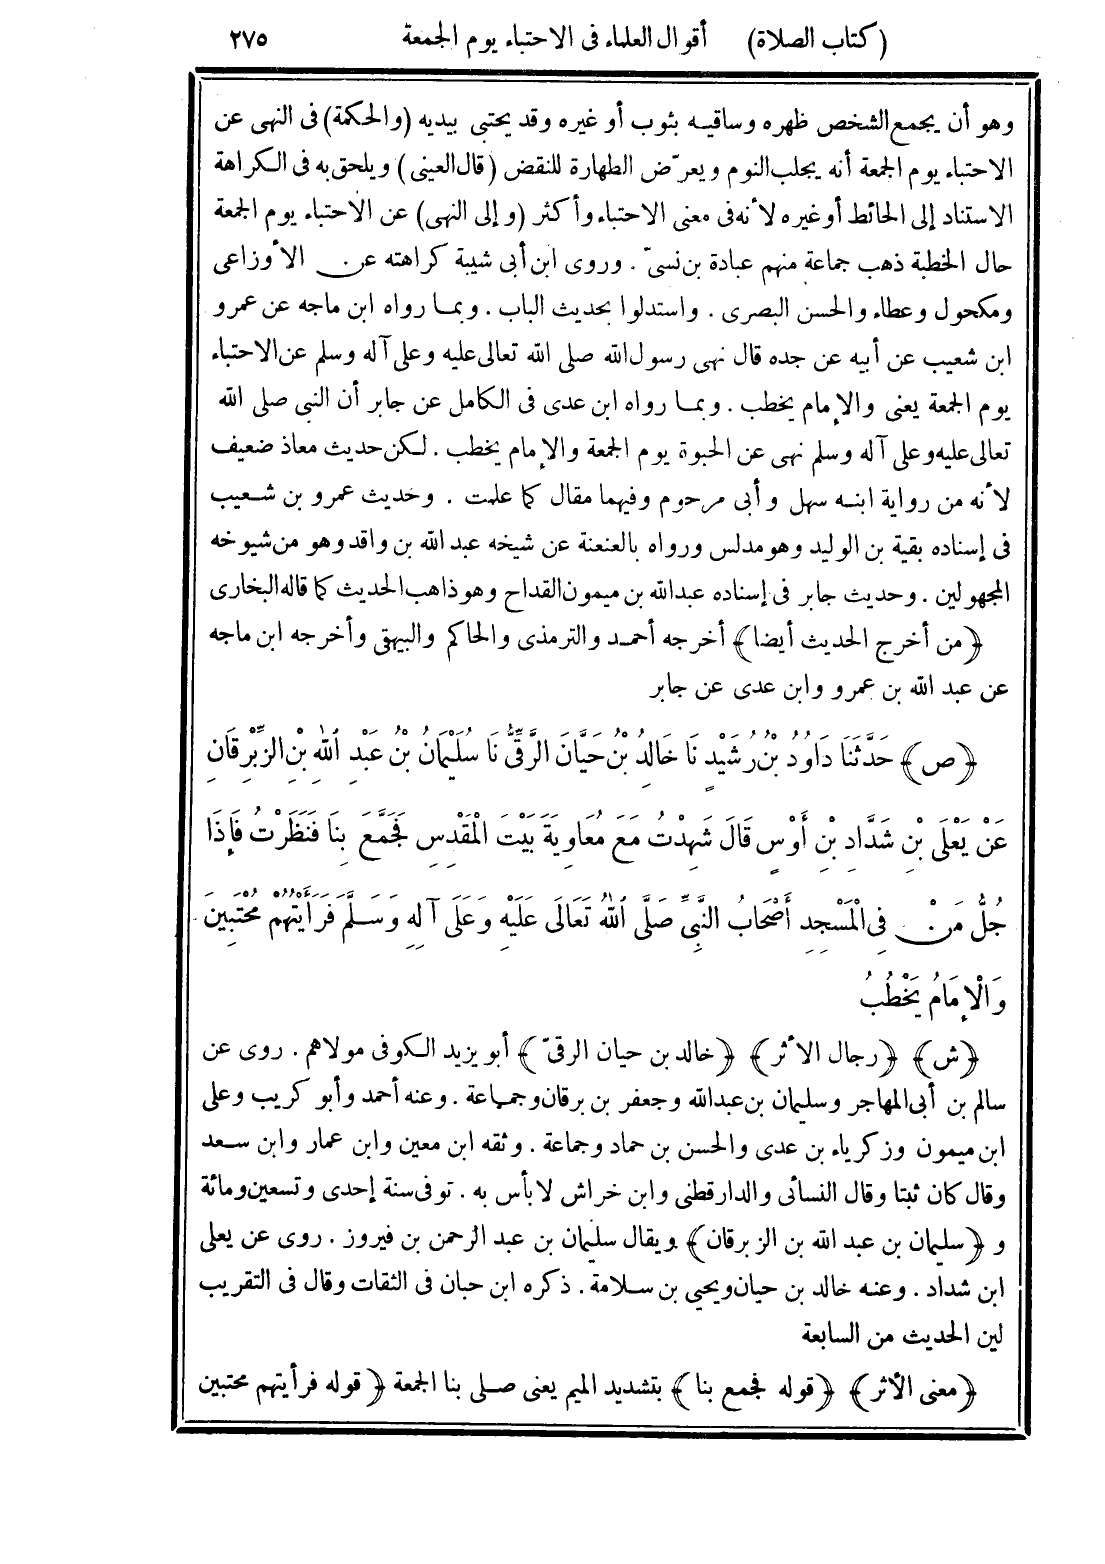 (كتاب الصلاة) أقوال العلماء فى الاحتباء يوم الجمعة ٢٧٥
وهو أن يجمع الشخص ظهره وساقيه بثوب أو غيره وقد يحتبى بيديه (والحكمة) فى النهى عن
الاحتباء يوم الجمعة أنه يجلب النوم ويعرّض الطهارة للنقض (قال العينى) ويلحق به فى الكراهة
الاستناد إلى الحائط أو غيره لأنه فى معنى الاحتباء وأكثر (وإلى النهى) عن الاحتباء يوم الجمعة
حال الخطبة ذهب جماعة منهم عبادة بن نسىّ . وروى ابن أبى شيبة كراهته عن الأوزاعى
ومكحول وعطاء والحسن البصرى . واستدلوا بحديث الباب . وبما رواه ابن ماجه عن عمرو
ابن شعيب عن أبيه عن جده قال نهى رسول الله صلى الله تعالى عليه وعلى آله وسلم عن الاحتباء
يوم الجمعة يعنى والإمام يخطب . وبما رواه ابن عدى فى الكامل عن جابر أن النبى صلى الله
تعالى عليه وعلى آله وسلم نهى عن الحبوة يوم الجمعة والإمام يخطب . لكن حديث معاذ ضعيف
لأنه من رواية ابنه سهل وأبى مرحوم وفيهما مقال كما علمت . وحديث عمرو بن شعيب
فى إسناده بقية بن الوليد وهو مدلس ورواه بالعنعنة عن شيخه عبد الله بن واقد وهو من شيوخه
المجهولين . وحديث جابر فى إسناده عبد الله بن ميمون القداح وهو ذاهب الحديث كما قاله البخارى
﴿من أخرج الحديث أيضا﴾ أخرجه أحمد والترمذى والحاكم والبيهقى وأخرجه ابن ماجه
عن عبد الله بن عمرو وابن عدى عن جابر
﴿ص﴾ حَدَّثَنَا دَاوُدُ بْنُ رُشَيْدٍ نَا خَالِدُ بْنُ حَيَّانَ الرَّقِّىُّ نَا سُلَيْمَانُ بْنُ عَبْدِ اللهِ بْنِ الزِّبْرِقَانِ
عَنْ يَعْلَى بْنِ شَدَّادِ بْنِ أَوْسٍ قَالَ شَهِدْتُ مَعَ مُعَاوِيَةَ بَيْتَ الْمَقْدِسِ فَجَمَّعَ بِنَا فَنَظَرْتُ فَإِذَا
جُلُّ مَنْ فِى الْمَسْجِدِ أَصْحَابُ النَّبِىِّ صَلَّى اللهُ تَعَالَى عَلَيْهِ وَعَلَى آلِهِ وَسَلَّمَ فَرَأَيْتُهُمْ مُحْتَبِينَ
وَالْإِمَامُ يَخْطُبُ
﴿ش﴾ ﴿رجال الأثر﴾ ﴿خالد بن حيان الرقىّ﴾ أبو يزيد الكوفى مولاهم . روى عن
سالم بن أبى المهاجر وسليمان بن عبد الله وجعفر بن برقان وجماعة . وعنه أحمد وأبو كريب وعلى
ابن ميمون وزكرياء بن عدى والحسن بن حماد وجماعة . وثقه ابن معين وابن عمار وابن سعد
وقال كان ثبتا وقال النسائى والدارقطنى وابن خراش لا بأس به . توفى سنة إحدى وتسعين ومائة
و﴿سليمان بن عبد الله بن الزبرقان﴾ ويقال سليمان بن عبد الرحمن بن فيروز . روى عن يعلى
ابن شداد . وعنه خالد بن حيان ويحيى بن سلامة . ذكره ابن حبان فى الثقات وقال فى التقريب
لين الحديث من السابعة
﴿معنى الأثر﴾ ﴿قوله فجمع بنا﴾ بتشديد الميم يعنى صلى بنا الجمعة ﴿قوله فرأيتهم محتبين